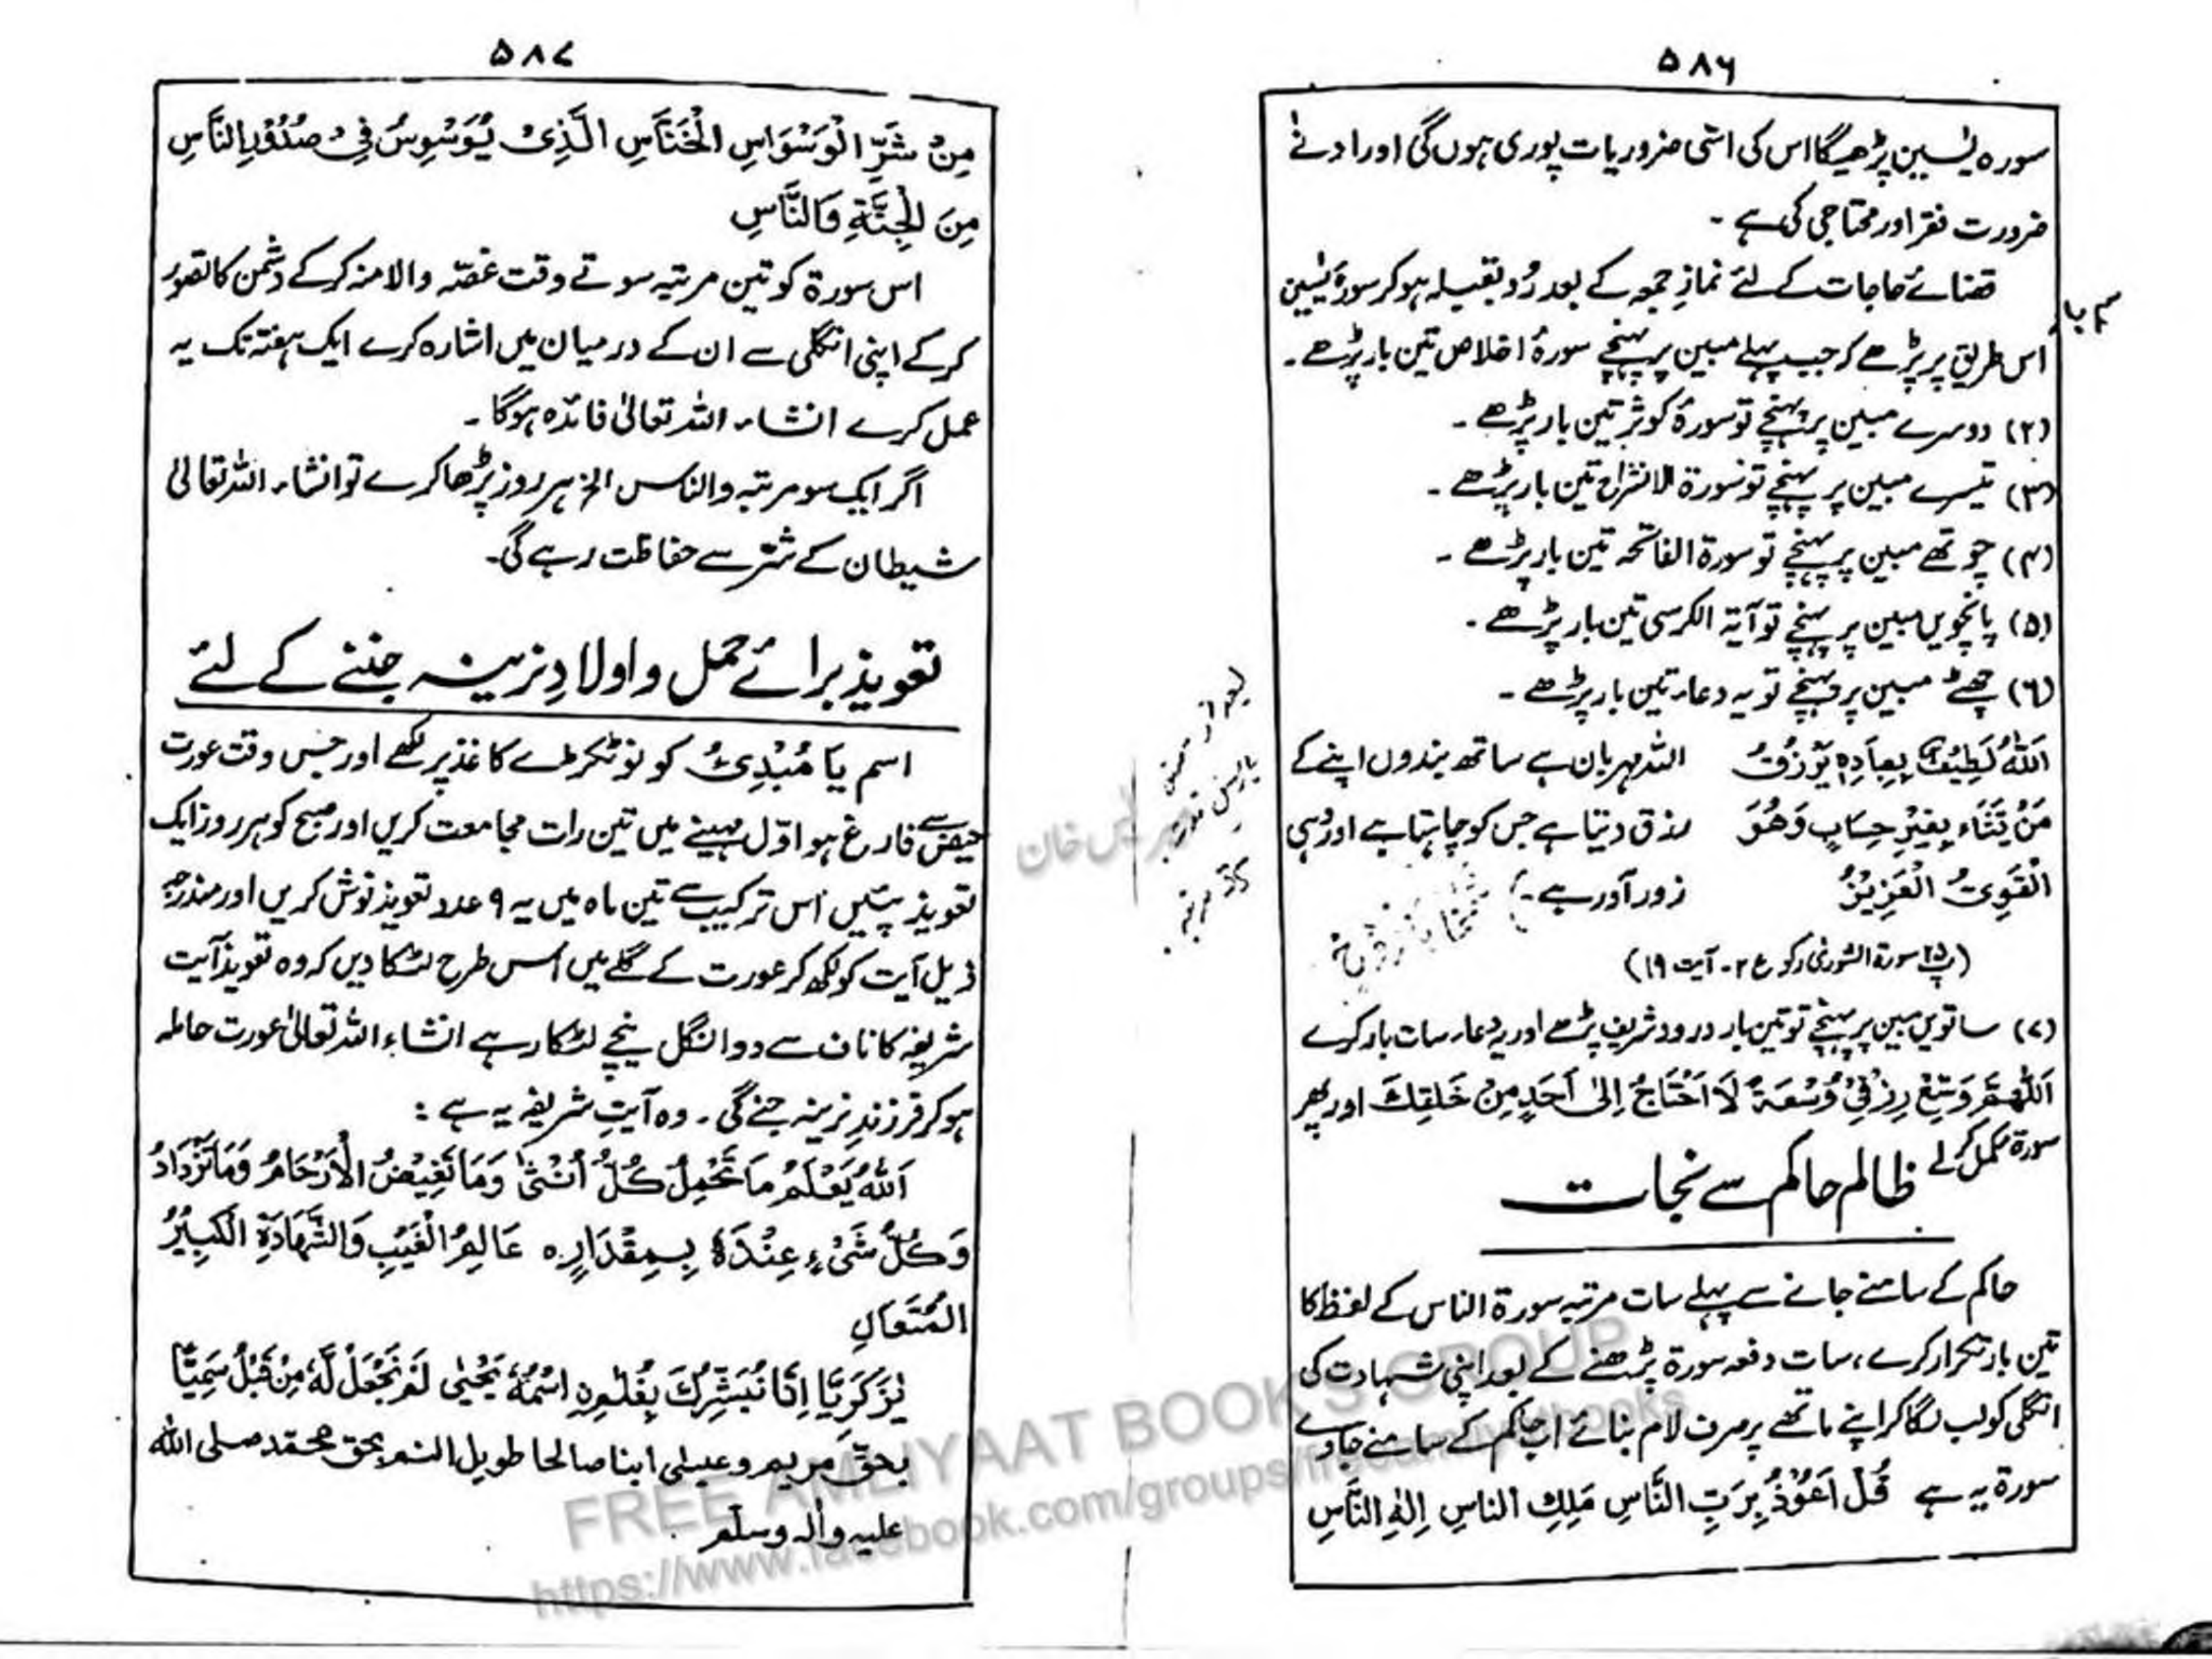 ۵۸۶
سورہ یٰسین پڑھیگا اس کی اسّی ضروریات پوری ہوں گی اور ادنےٰ
ضرورت فقر اور محتاجی کی ہے ۔
قضائے حاجات کے لئے نمازِ جمعہ کے بعد رُو بقبلہ ہو کر سورۂ یٰسین
اس طریق پر پڑھے کہ جب پہلے مبین پر پہنچے سورۂ اخلاص تین بار پڑھے ۔
(۲) دوسرے مبین پر پہنچے تو سورۂ کوثر تین بار پڑھے ۔
(۳) تیسرے مبین پر پہنچے تو سورۃ الانشراح تین بار پڑھے ۔
(۴) چوتھے مبین پر پہنچے تو سورۃ الفاتحہ تین بار پڑھے ۔
(۵) پانچویں مبین پر پہنچے تو آیۃ الکرسی تین بار پڑھے ۔
(۶) چھٹے مبین پر پہنچے تو یہ دعاء تین بار پڑھے ۔
اَللّٰهُ لَطِيْفٌ بِعِبَادِهٖ يَرْزُقُ اللہ مہربان ہے ساتھ بندوں اپنے کے
مَنْ يَّشَاءُ بِغَيْرِ حِسَابٍ وَهُوَ رزق دیتا ہے جس کو چاہتا ہے اور وُہی
الْقَوِىُّ الْعَزِيْزُ زور آور ہے ۔
(پ ۲۵ سورۃ الشوریٰ رکوع ۲ ۔ آیت ۱۹)
(۷) ساتویں مبین پر پہنچے تو تین بار درود شریف پڑھے اور یہ دعاء سات بار کرے
اَللّٰهُمَّ وَسِّعْ رِزْقِيْ وُسْعَةً لَا اَحْتَاجُ اِلىٰ اَحَدٍ مِنْ خَلقِكَ اور پھر
سورۃ مکمل کرلے
ظالم حاکم سے نجات
حاکم کے سامنے جانے سے پہلے سات مرتبہ سورۃ الناس کے لفظ کا
تین بار تکرار کرے، سات دفعہ سورۃ پڑھنے کے بعد اپنی شہادت کی
انگلی کو لب لگا کر اپنے ماتھے پر صرف لام بنائے اب حاکم کے سامنے جاوے
سورۃ یہ ہے قُلْ اَعُوْذُ بِرَبِّ النَّاسِ مَلِكِ الناسِ اِلٰهِ النَّاسِ
۵۸۷
مِنْ شَرِّ الْوَسْوَاسِ الْخَنَّاسِ الَّذِىْ يُوَسْوِسُ فِىْ صُدُوْرِ النَّاسِ
مِنَ الْجِنَّةِ وَالنَّاسِ
اس سورۃ کو تین مرتبہ سوتے وقت غصّہ والا منہ کرکے دشمن کا تصور
کرکے اپنی انگلی سے ان کے درمیان میں اشارہ کرے ایک ہفتہ تک یہ
عمل کرے انشاء اللہ تعالیٰ فائدہ ہوگا ۔
اگر ایک سو مرتبہ والناس الخ ہر روز پڑھا کرے تو انشاء اللہ تعالیٰ
شیطان کے شر سے حفاظت رہے گی۔
تعویذ برائے حمل و اولادِ نرینہ جننے کے لئے
اسم يَا مُبْدِئُ کو نو ٹکڑے کاغذ پر لکھے اور جس وقت عورت
حیض سے فارغ ہو اوّل مہینے میں تین رات مجامعت کریں اور صبح کو ہر روز ایک
تعویذ پئیں اس ترکیب سے تین ماہ میں یہ ۹ عدد تعویذ نوش کریں اور مندرجہ
ذیل آیت کو لکھ کر عورت کے گلے میں اس طرح لٹکا دیں کہ وہ تعویذ آیت
شریفہ کا ناف سے دو انگل نیچے لٹکا رہے انشاء اللہ تعالیٰ عورت حاملہ
ہو کر فرزندِ نرینہ جنے گی ۔ وہ آیتِ شریفہ یہ ہے :
اَللّٰهُ يَعْلَمُ مَا تَحْمِلُ كُلُّ اُنْثىٰ وَمَا تَغِيْضُ الْاَرْحَامُ وَمَا تَزْدَادُ
وَكُلُّ شَىْءٍ عِنْدَهٗ بِمِقْدَارٍ ہ عَالِمُ الْغَيْبِ وَالشَّهَادَةِ الْكَبِيْرُ
الْمُتَعَالِ
يٰزَكَرِيَّا اِنَّا نُبَشِّرُكَ بِغُلٰمِ نِ اسْمُهٗ يَحْيٰى لَمْ نَجْعَلْ لَّهٗ مِنْ قَبْلُ سَمِيًّا
بحق مريم وعيسٰى ابنا صالحا طويل العمر بحق محمّد صلى الله
عليه وآله وسلّم
FREE AMLIYAAT BOOKS GROUP
https://www.facebook.com/groups/freeamliyatbooks